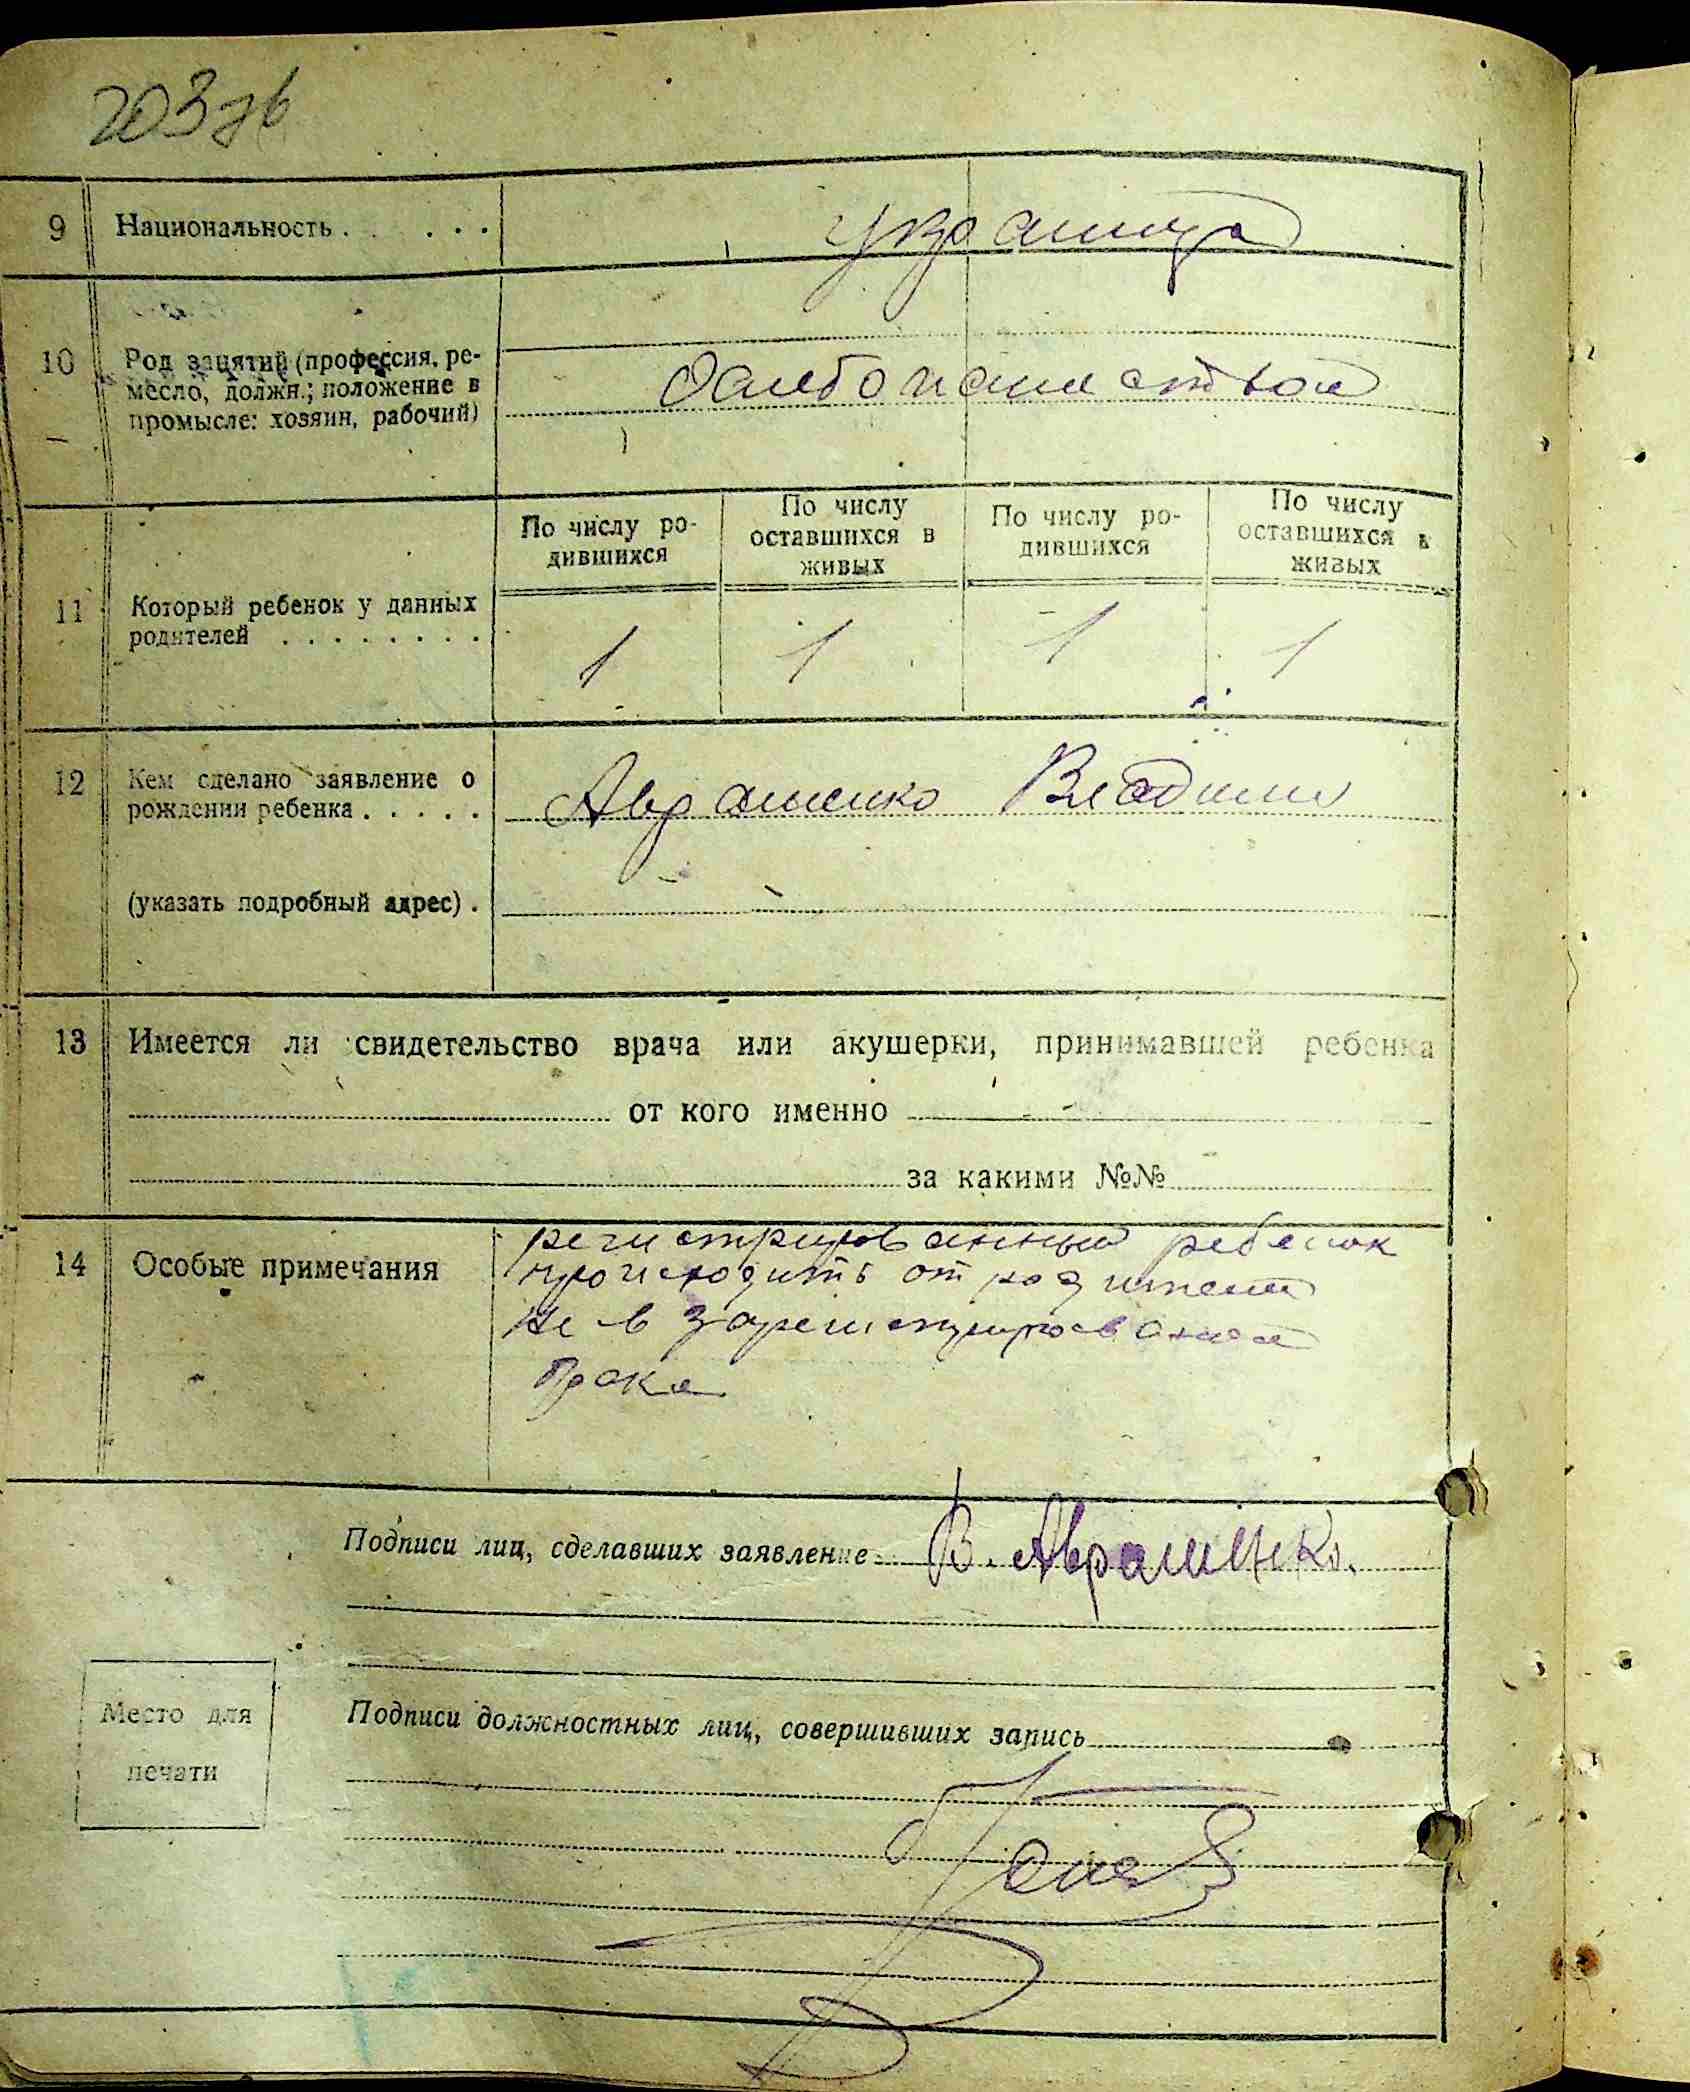 203 зв
9 Национальность . . . . . украинцы
10 Род занятий (профессия, ре-
месло, должн.; положение в
промысле: хозяин, рабочий)
По числу ро-
дившихся
По числу
оставшихся в
живых
По числу ро-
дившихся
По числу
оставшихся в
живых
11 Который ребенок у данных
родителей . . . . . . . .
1 1 1 1
12 Кем сделано заявление о
рождении ребенка . . . . . Авраменко Владимир
(указать подробный адрес) .
13 Имеется ли свидетельство врача или акушерки, принимавшей ребенка
от кого именно
за какими №№
14 Особые примечания
регистрированный ребенок
происходить от родителей
не в зарегистрированом
браке
Подписи лиц, сделавших заявление В. Авраменко.
Место для
печати
Подписи должностных лиц, совершивших запись